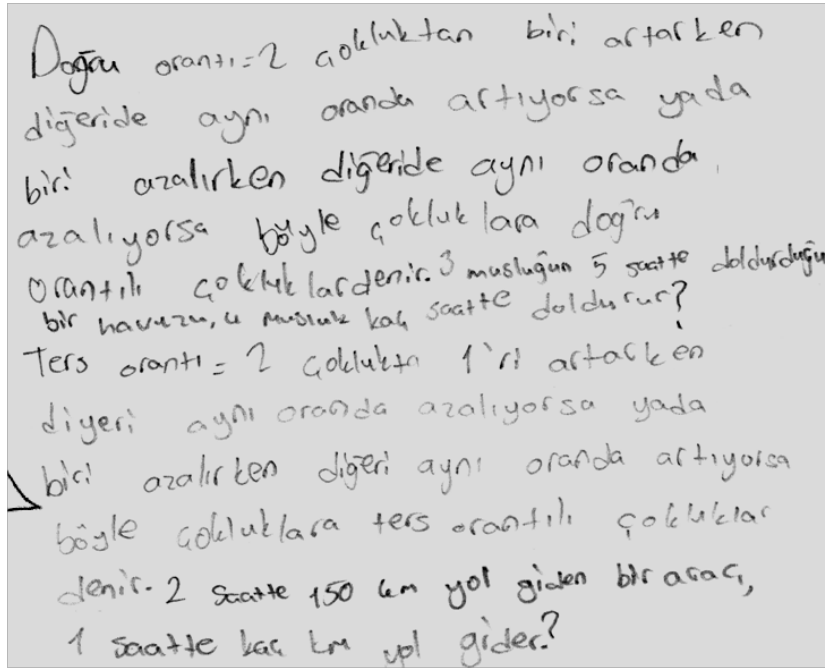 Doğru orantı=2 çokluktan biri artarken
diğeride aynı oranda artıyorsa yada
biri azalırken diğeride aynı oranda
azalıyorsa böyle çokluklara doğru
orantılı çokluklardenir. 3 musluğun 5 saatte doldurduğu
bir havuzu, 4 musluk kaç saatte doldurur?
Ters orantı = 2 çoklukta 1'ri artarken
diyeri aynı oranda azalıyorsa yada
biri azalırken diğeri aynı oranda artıyorsa
böyle çokluklara ters orantılı çokluklar
denir. 2 saatte 150 km yol giden bir araç,
1 saatte kaç km yol gider?